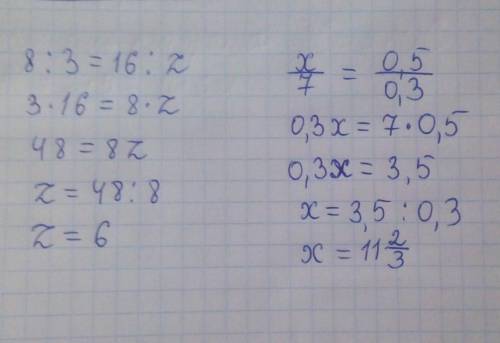 8 : 3 = 16 : z
3 · 16 = 8 · z
48 = 8z
z = 48 : 8
z = 6
x/7 = 0,5/0,3
0,3x = 7 · 0,5
0,3x = 3,5
x = 3,5 : 0,3
x = 11 2/3